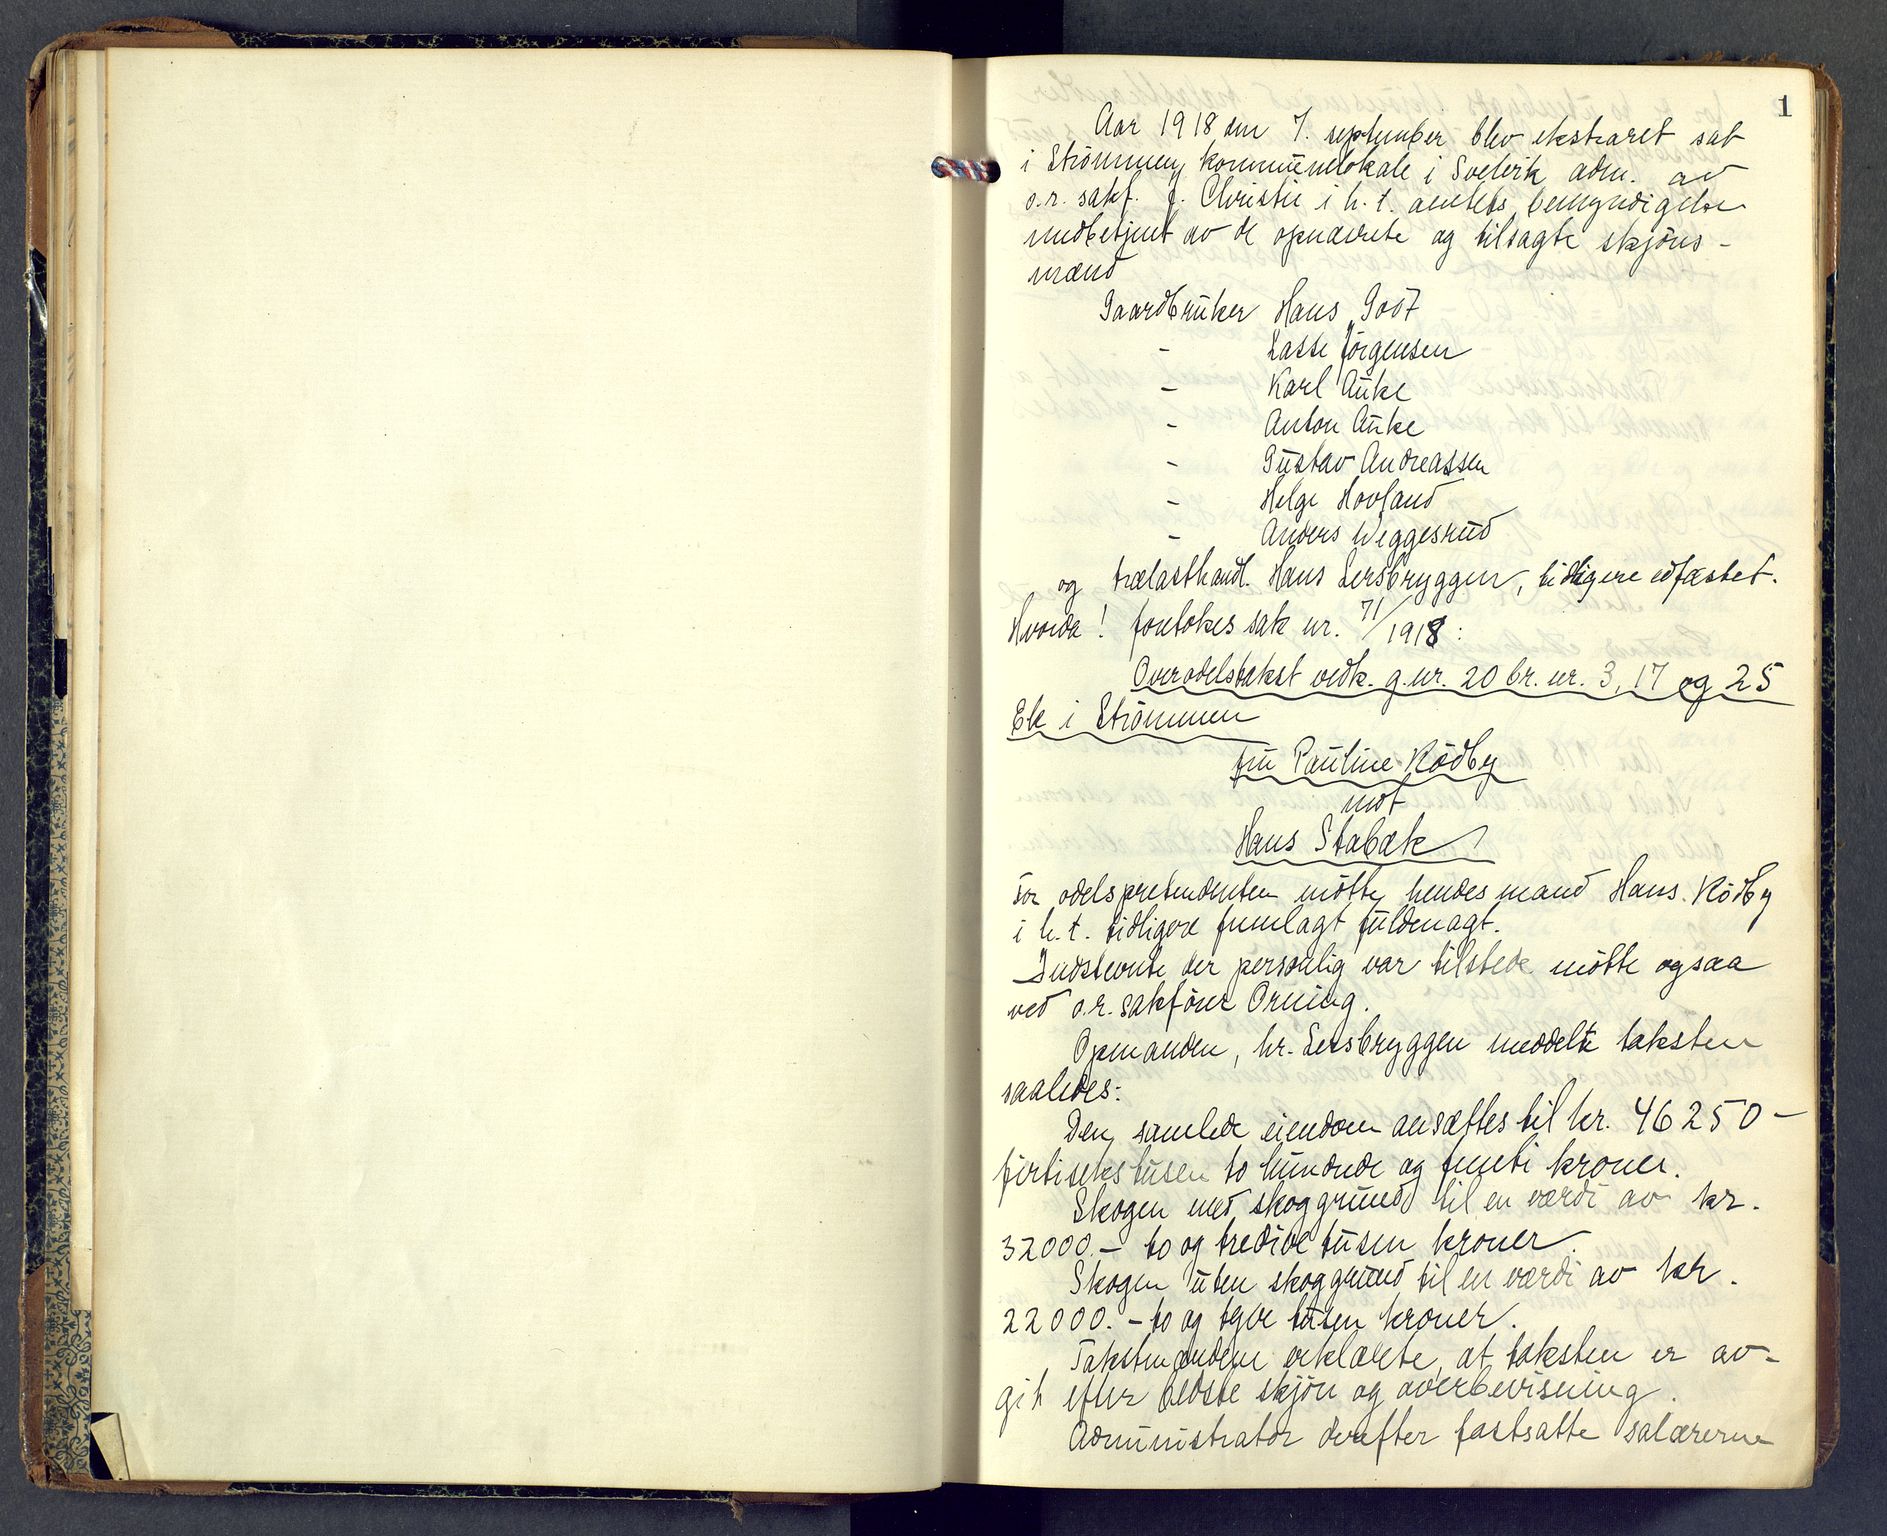 1
Aar 1918 den 7. september blev ekstraret sat
i Strømmen kommunelokale i Svelvik adm. av
o.r. sakf. J. Christie i h. t. amtets bemyndigelse
medbetjent av de opnævnte og tilsagte skjøns-
mænd
Gaardbruker Hans Goot
- Lasse Jørgensen
- Karl Auke
- Anton Auke
- Gustav Andreassen
- Helge Hovland
- Anders Weggesrud
og trælasthandl. Hans Lersbryggen, tidligere edfæstet.
Hvorda! foretokes sak nr. 71/1918:
Overodelstakst vedk. g.nr. 20 br. nr. 3, 17 og 25
Ek i Strømmen
fru Pauline Rødby
mot
Hans Stabæk
For odelspretendenten møtte hendes mand Hans Rødby
i h. t. tidligere fremlagt fuldmagt.
Indstevnte der personlig var tilstede møtte ogsaa
ved o.r. sakfører Orning.
Opmanden, hr. Lersbryggen meddelte taksten
saaledes:
Den samlede eiendom ansættes til kr. 46250-
førtisekstusen to hundrede og femti kroner.
Skogen med skoggrund til en værdi av kr.
32000.- to og tredive tusen kroner.
Skogen uten skoggrund til en værdi av kr.
22000.- to og tyve tusen kroner.
Takstmændene erklærte, at taksten er av-
git efter bedste skjøn og overbevisning.
Administrator derefter fastsatte salærerne